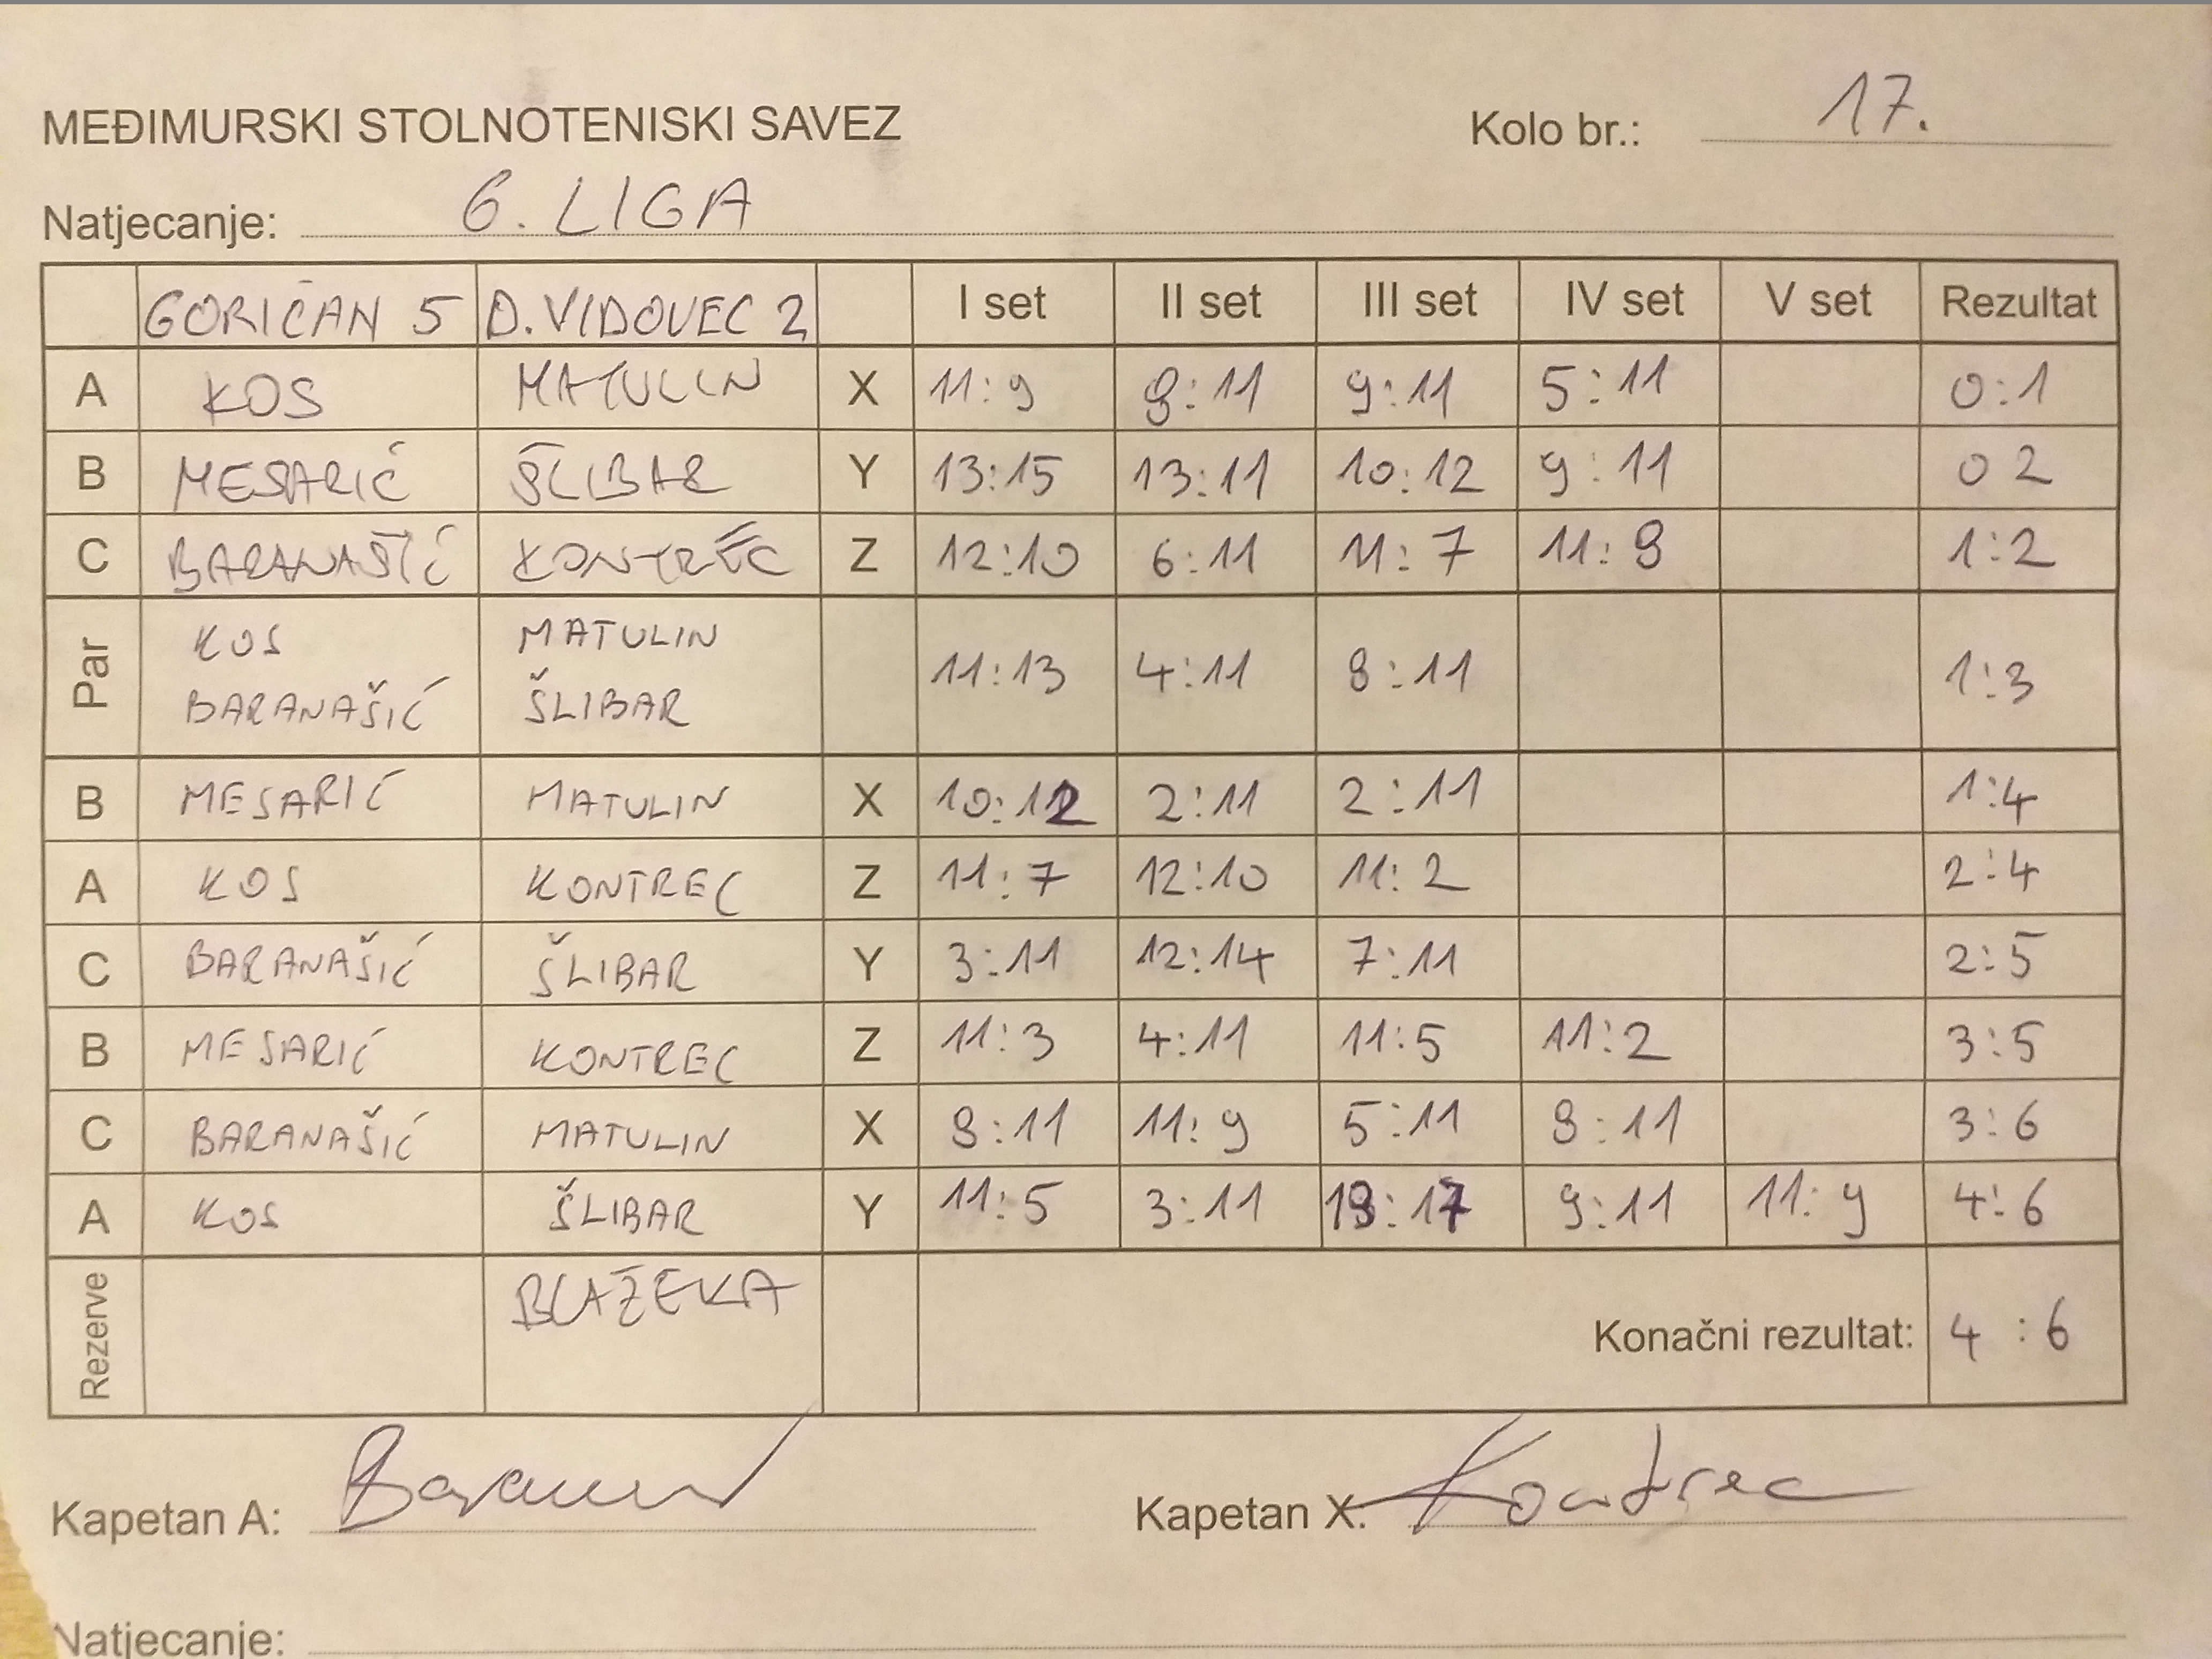 MEĐIMURSKI STOLNOTENISKI SAVEZ Kolo br.: 17.
Natjecanje: 6. LIGA
GORIČAN 5 D.VIDOVEC 2 I set II set III set IV set V set Rezultat
A KOS MATULIN X 11:9 8:11 9:11 5:11 0:1
B MESARIĆ ŠLIBAR Y 13:15 13:11 10:12 9:11 0 2
C BARANAŠIĆ KONTREC Z 12:10 6:11 11:7 11:8 1:2
Par KOS BARANAŠIĆ MATULIN ŠLIBAR 11:13 4:11 8:11 1:3
B MESARIĆ MATULIN X 10:12 2:11 2:11 1:4
A KOS KONTREC Z 11:7 12:10 11:2 2:4
C BARANAŠIĆ ŠLIBAR Y 3:11 12:14 7:11 2:5
B MESARIĆ KONTREC Z 11:3 4:11 11:5 11:2 3:5
C BARANAŠIĆ MATULIN X 8:11 11:9 5:11 8:11 3:6
A KOS ŠLIBAR Y 11:5 3:11 19:17 9:11 11:9 4:6
Rezerve BLAŽEKA Konačni rezultat: 4 : 6
Kapetan A: Kapetan X: Kontrec
Natjecanje: